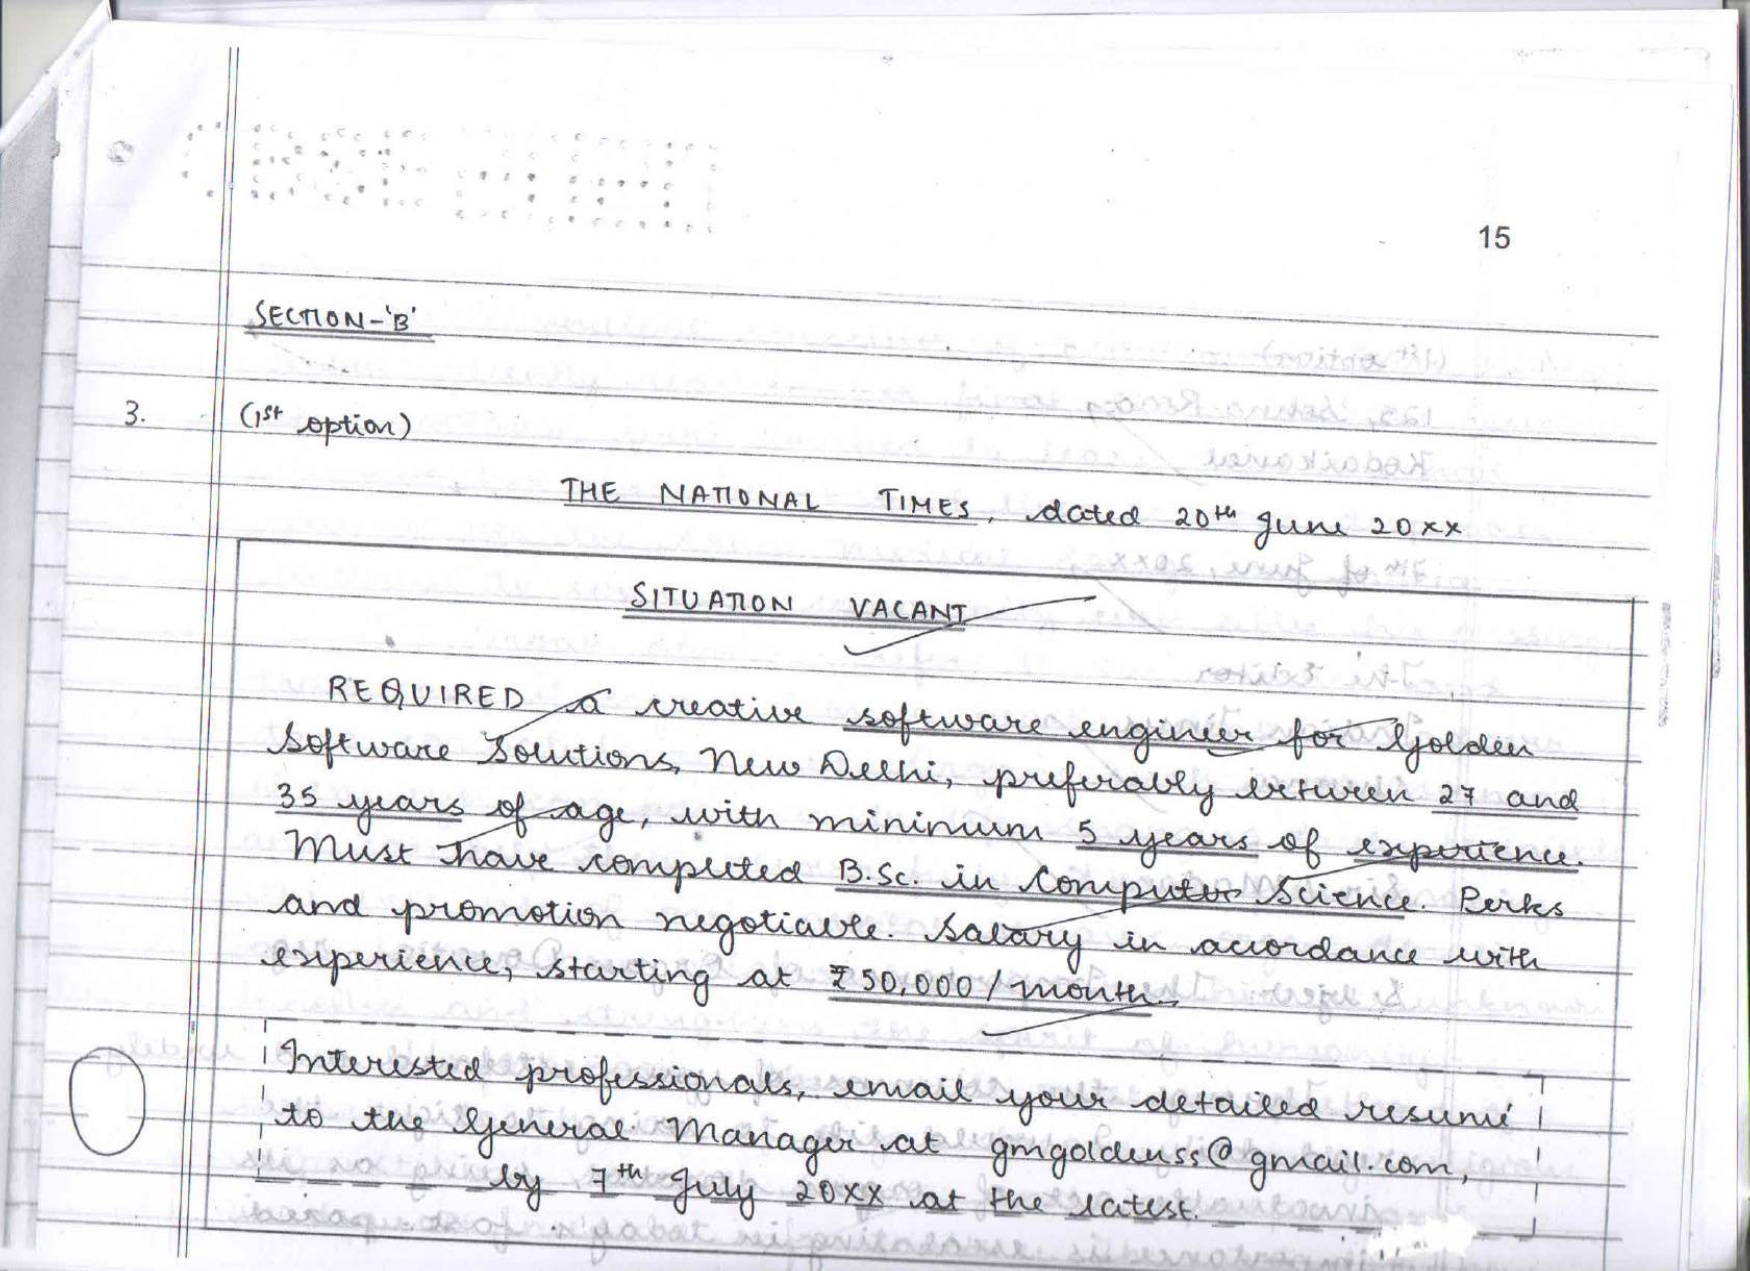 15
SECTION-'B'
3. (1st option)
THE NATIONAL TIMES, dated 20th June 20xx
SITUATION VACANT
REQUIRED a creative software engineer for Golden
Software Solutions, New Delhi, preferably between 27 and
35 years of age, with minimum 5 years of experience.
Must have completed B.Sc. in Computer Science. Perks
and promotion negotiable. Salary in accordance with
experience, starting at ₹50,000/month.
Interested professionals, email your detailed resumé
to the General Manager at gmgoldenss@gmail.com,
by 7th July 20xx at the latest.